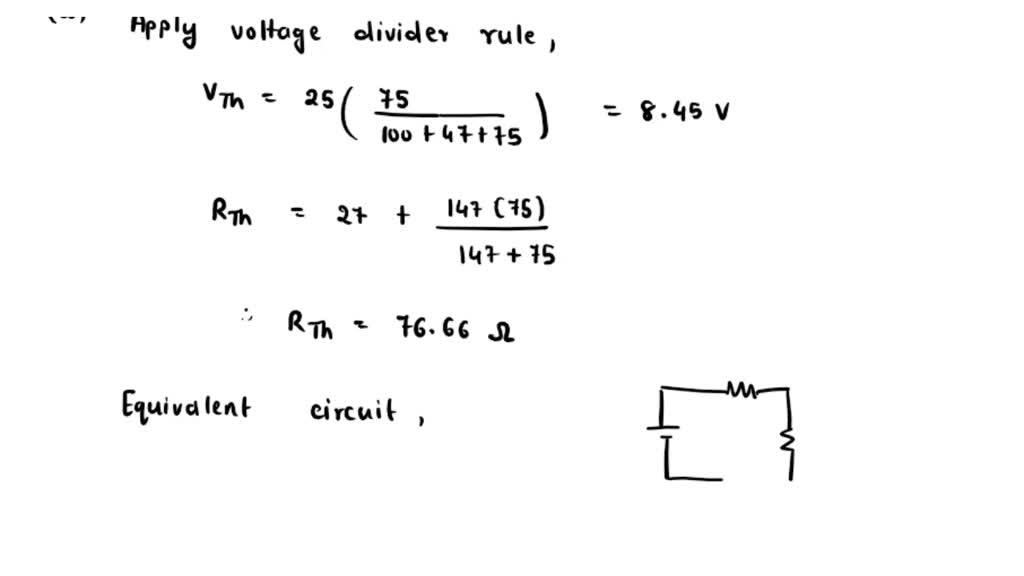 Apply voltage divider rule,
V_Th = 25 ( 75 / 100 + 47 + 75 ) = 8.45 V
R_Th = 27 + 147 (75) / 147 + 75
∴ R_Th = 76.66 Ω
Equivalent circuit,